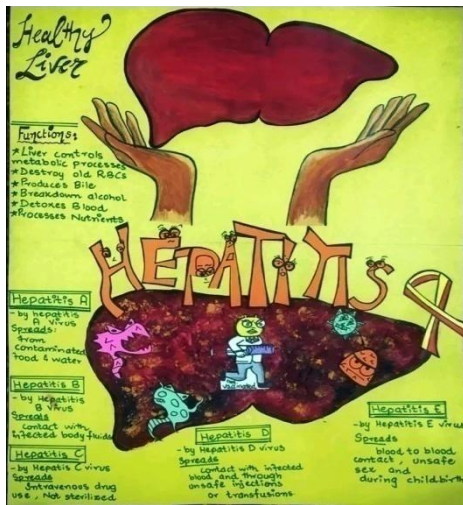 Healthy
Liver
Functions:
*Liver controls
metabolic processes
*Destroy old RBCs
*Produces Bile
*Breakdown alcohol
*Detoxes Blood
*Processes Nutrients
HEPATITIS
Hepatitis A
- by hepatitis
A virus
Spreads:
from
contaminated
food & water
Hepatitis B
- by Hepatitis
B virus
Spreads
contact with
infected body fluids
Hepatitis C
- by Hepatitis C virus
Spreads
Intravenous drug
use, Not sterilized
Hepatitis D
- by Hepatitis D virus
Spreads
contact with infected
blood and through
unsafe injections
or transfusions
Hepatitis E
- by Hepatitis E virus
Spreads
blood to blood
contact, unsafe
sex and
during childbirth